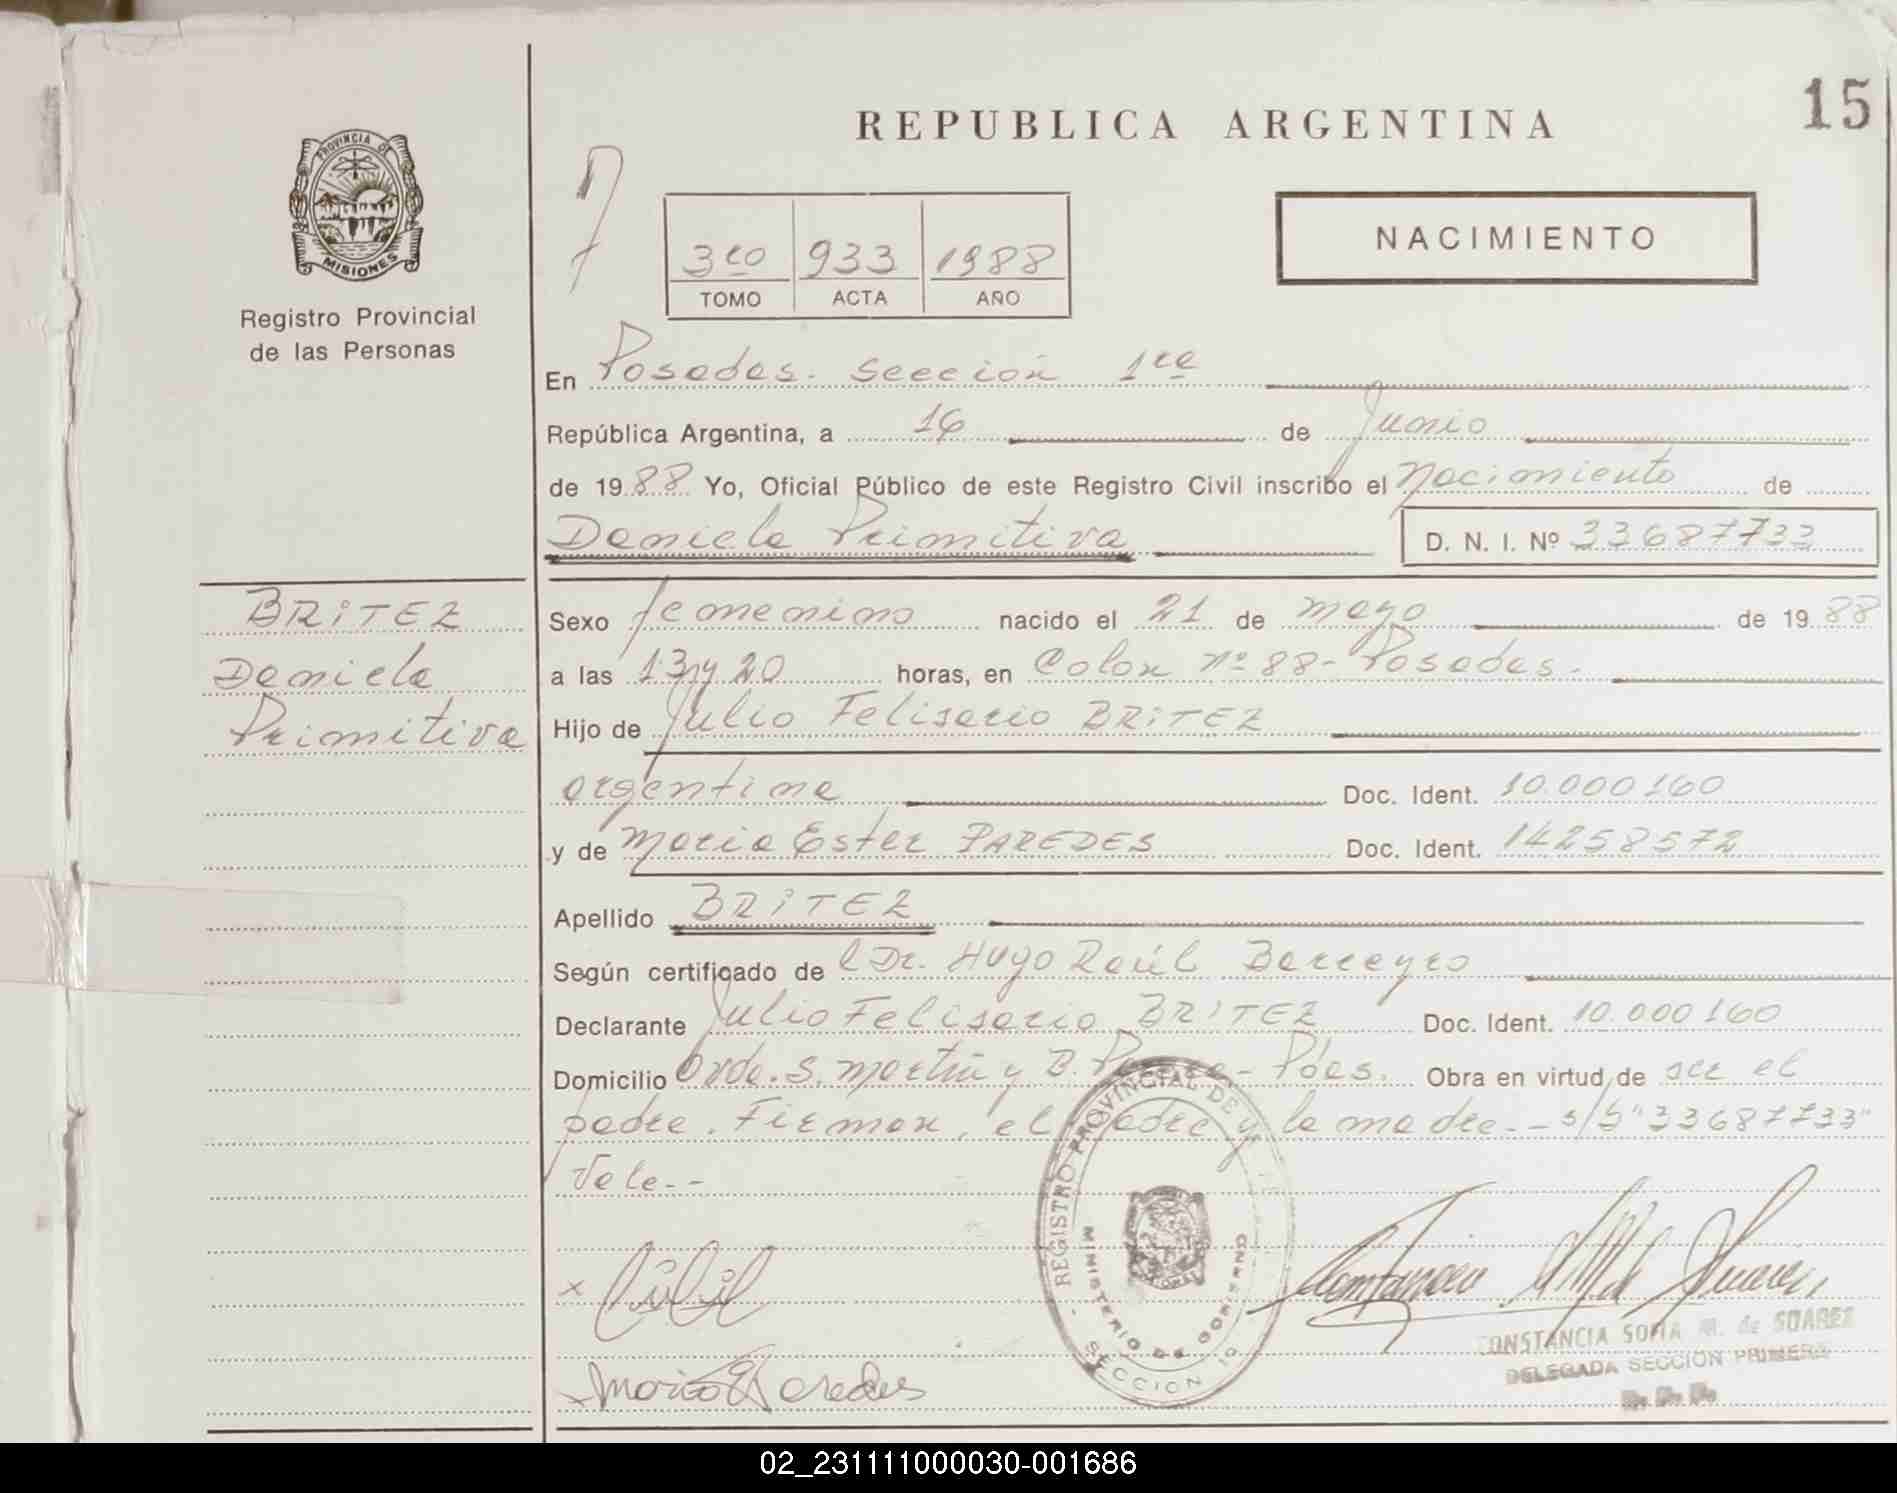 15
REPUBLICA ARGENTINA
PROVINCIA DE
MISIONES
Registro Provincial
de las Personas
3ro 933 1988
TOMO ACTA AÑO
NACIMIENTO
En Posadas. Sección 1ra
República Argentina, a 16 de Junio
de 1988 Yo, Oficial Público de este Registro Civil inscribo el Nacimiento de
Daniela Primitiva D. N. I. Nº 33687733
BRITEZ
Daniela
Primitiva
Sexo femenino nacido el 21 de mayo de 1988
a las 13 y 20 horas, en Colón nº 88 - Posadas.
Hijo de Julio Felisario BRITEZ
argentina Doc. Ident. 10.000160
y de Maria Ester PAREDES Doc. Ident. 14258572
Apellido BRITEZ
Según certificado de l Dr. Hugo Raúl Barreyro
Declarante Julio Felisario BRITEZ Doc. Ident. 10.000160
Domicilio S. Martín y B. - Pdas. Obra en virtud de ser el
padre. Firman, el padre y la madre. - s/b "33687733"
Vale. --
REGISTRO PROVINCIAL DE
MINISTERIO DE GOBIERNO
SECCION
x
Maria E Paredes
CONSTANCIA SOFIA M. de SUAREZ
DELEGADA SECCION PRIMERA
02_231111000030-001686